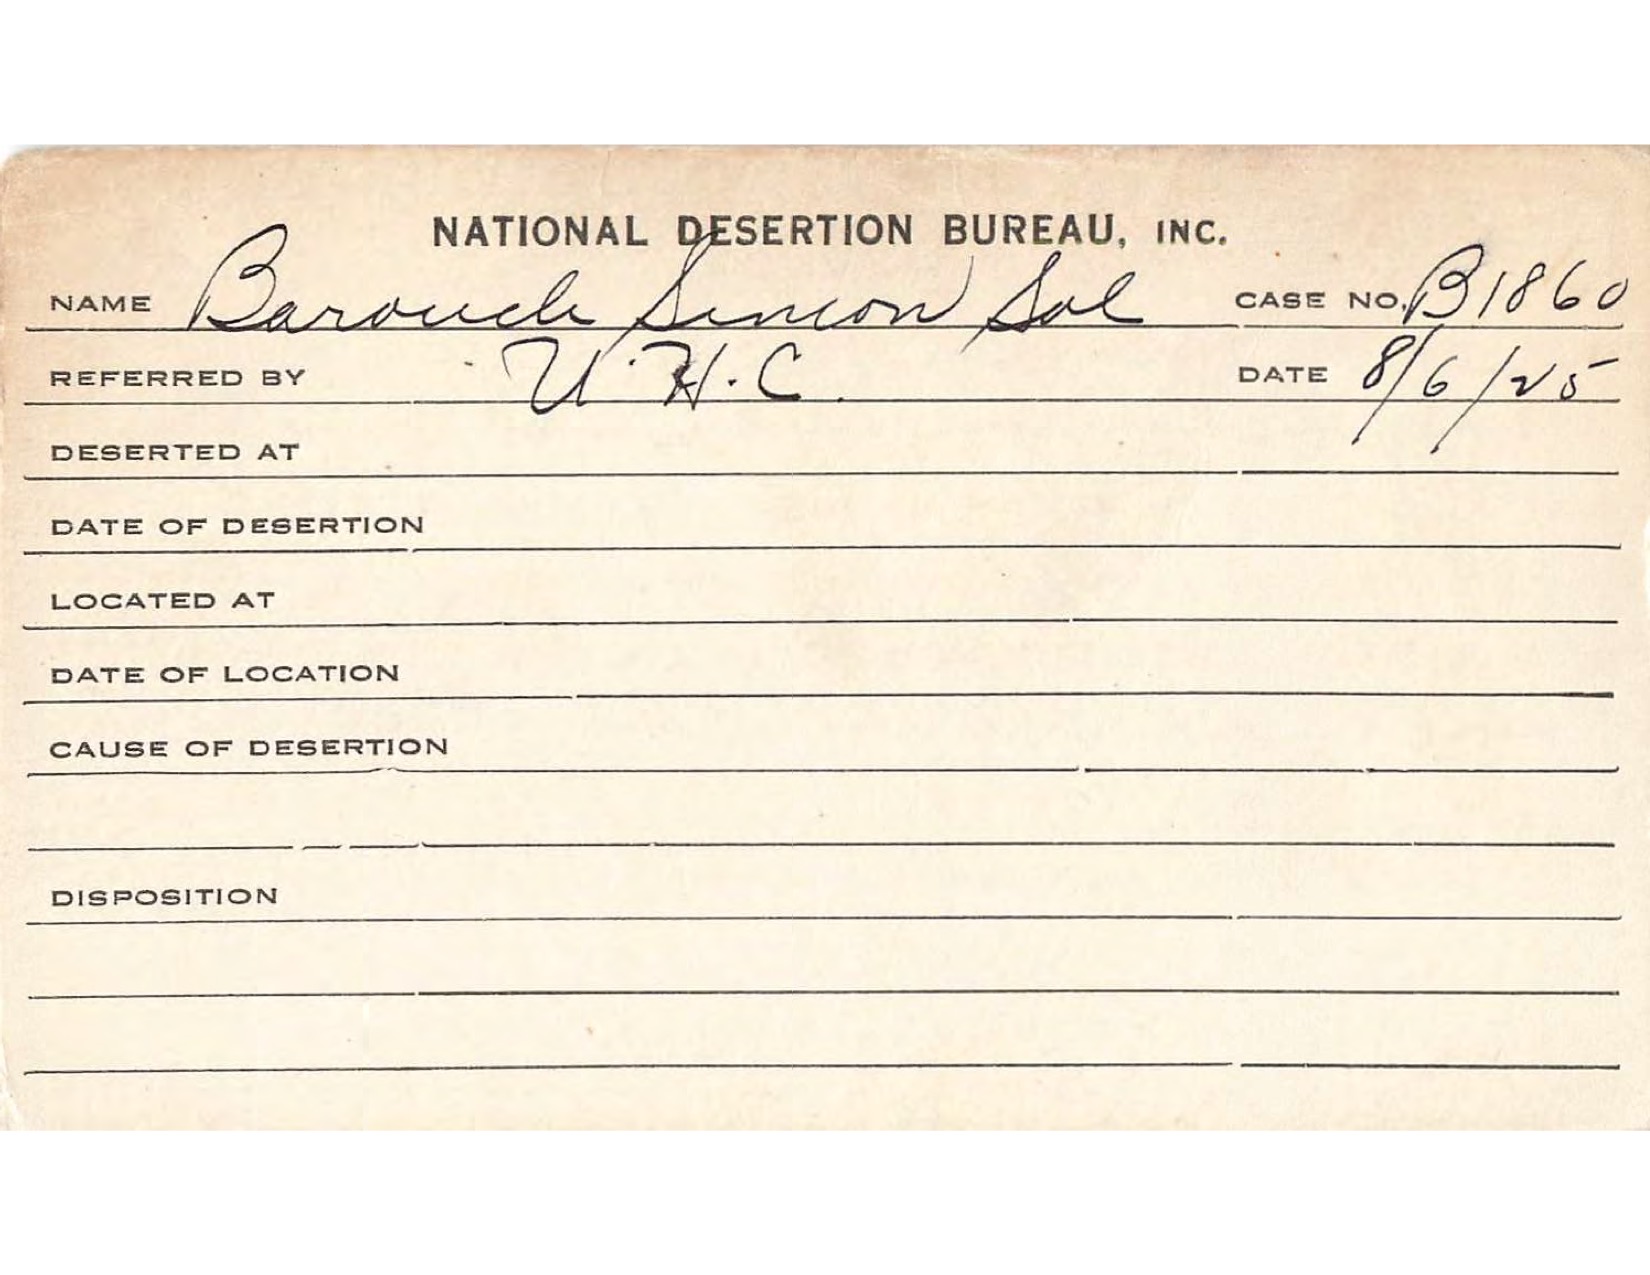 NATIONAL DESERTION BUREAU, INC.
NAME Barouch Simeon Sol CASE NO. B1860
REFERRED BY U.H.C. DATE 8/6/25
DESERTED AT
DATE OF DESERTION
LOCATED AT
DATE OF LOCATION
CAUSE OF DESERTION
DISPOSITION